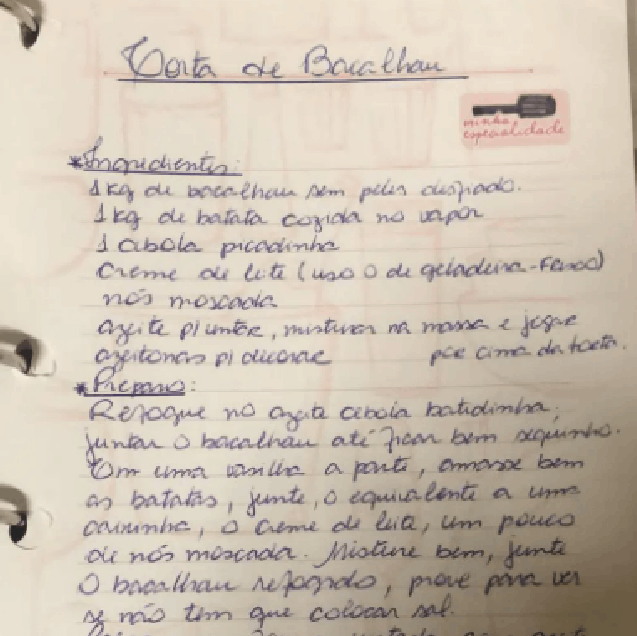 Torta de Bacalhau
minha
especialidade
*Ingredientes:
1 kg de bacalhau sem peles desfiado.
1 kg de batata cozida no vapor
1 cebola picadinha
creme de leite (uso o de geladeira-fresco)
nós moscada
azeite p/ untar, misturar na massa e jogar
por cima da torta.
azeitonas p/ decorar
*Preparo:
Refogue no azeite cebola batidinha,
juntar o bacalhau até ficar bem sequinho.
Em uma vasilha a parte, amasse bem
as batatas, junte, o equivalente a uma
caixinha, o creme de leite, um pouco
de nós moscada. Misture bem, junte
o bacalhau refogado, prove para ver
se não tem que colocar sal.